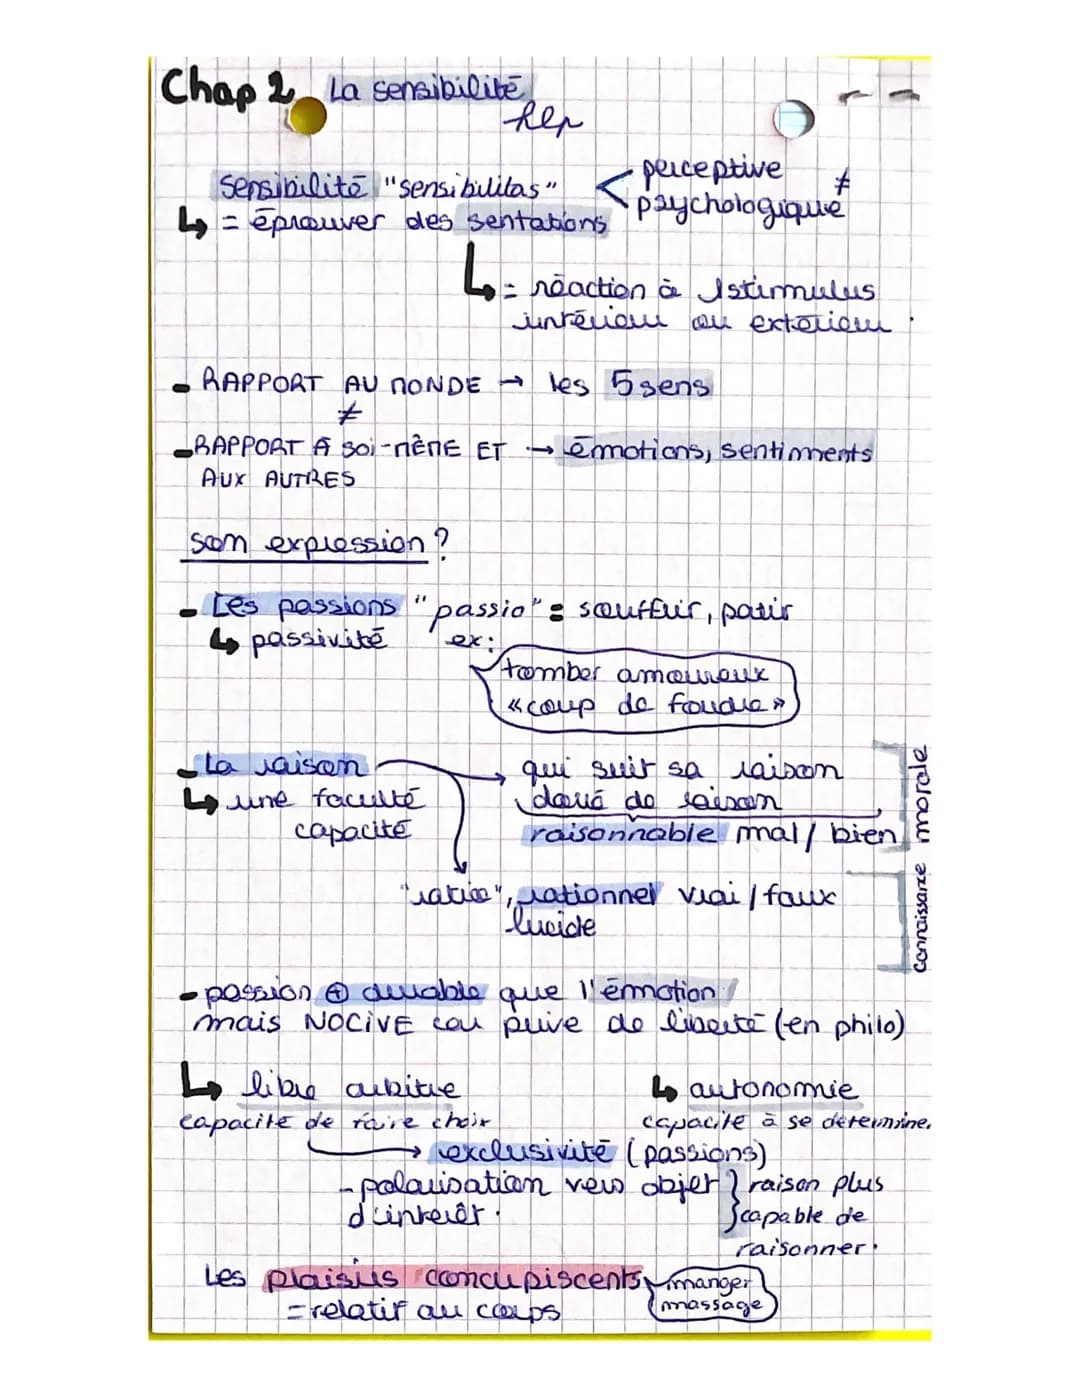 Chap 2 La sensibilité
hlp
sensibilité "sensibilitas" < perceptive ≠
psychologique
↳ = éprouver des sentations
↳ = réaction à 1 stimulus
intérieur ou extérieur.
- RAPPORT AU MONDE → les 5 sens
≠
- RAPPORT À SOI-MÊME ET → émotions, sentiments
AUX AUTRES
son expression ?
- Les passions "passio" = souffrir, patir
↳ passivité ex:
tomber amoureux
« coup de foudre »
- La raison → qui suit sa raison
↳ une faculté doué de raison
capacité raisonnable mal / bien
morale
"ratio", rationnel vrai / faux
lucide
connaissance
- passion ⊕ durable que l'émotion
mais NOCIVE car prive de liberté (en philo)
↳ libre arbitre ↳ autonomie
capacité de faire choix capacité à se détermine.
→ exclusivité (passions)
- polarisation vers objet } raison plus
d'intérêt. capable de
raisonner.
Les plaisirs concupiscents manger
= relatif au corps massage